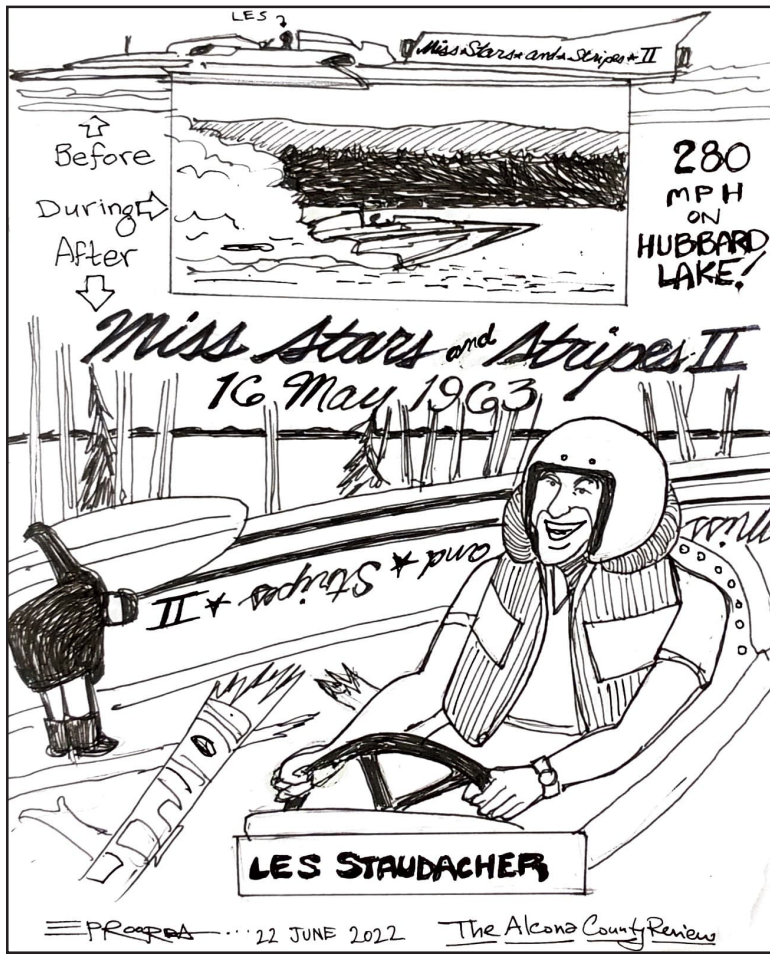 LES
Miss★Stars★and★Stripes★II
Before
During
After
280
MPH
ON
HUBBARD
LAKE!
Miss Stars and Stripes II
16 May 1963
and ★ Stripes ★ II
Miss
LES STAUDACHER
22 JUNE 2022 The Alcona County Review